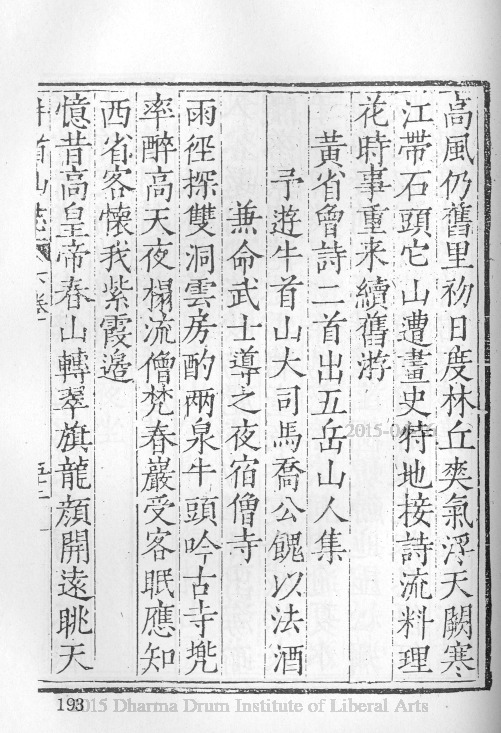 高風仍舊里初日度林丘爽氣浮天闕寒
江帶石頭它山遭畫史特地接詩流料理
花時事重来續舊游
黃省曾詩二首出五岳山人集
予遊牛首山大司馬喬公餽以法酒
兼命武士導之夜宿僧寺
雨徑探雙洞雲房酌兩泉牛頭吟古寺兠
率醉高天夜榻流僧梵春巖受客眠應知
西省客懷我紫霞邊
憶昔高皇帝春山轉翠旗龍顏開遠眺天
首山志 卷
193
2015 Dharma Drum Institute of Liberal Arts